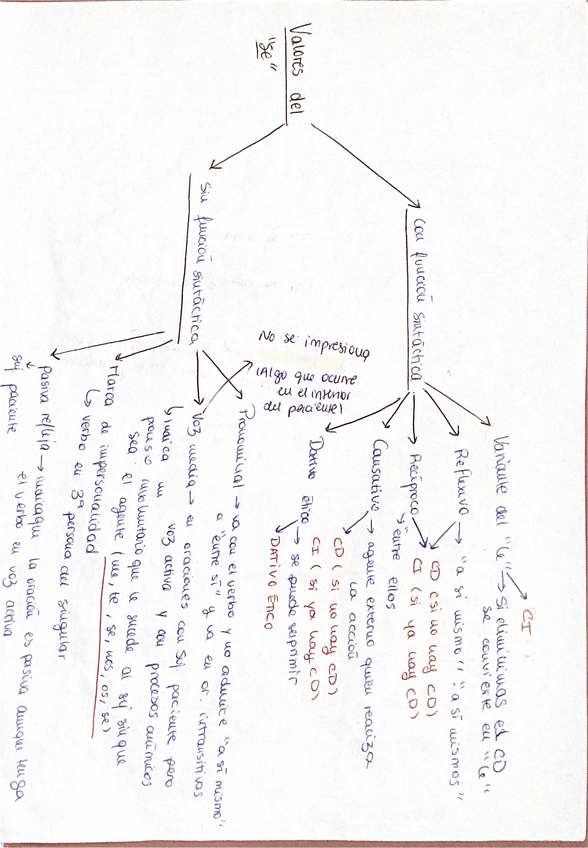 Valores del
"se"
Con función sintáctica
Variante del "le" → Si eliminimas el CD
se convierte en "le"
CI
Reflexivo → "a sí mismo", "a sí mismos"
CD (si no hay CD)
CI (si ya hay CD)
Recíproco
"entre ellos
Causativo → agente externo quien realiza
la acción
CD (si no hay CD)
CI (si ya hay CD)
Dativo ético → se puede suprimir
DATIVO ÉTICO
Sin función sintáctica
Pronominal → va con el verbo y no admite "a sí mismo",
o "entre sí" y va en or. intransitivas
Voz media → en oraciones con Suj paciente pero
voz activa y con procesos anímicos
No se impresiona
(Algo que ocurre
en el interior
del paciente)
indica un
proceso involuntario que le sucede al suj sin que
sea el agente (me, te, se, nos, os, se)
Marca de impersonalidad
verbo en 3ª persona del singular
pasiva refleja → marca que la oración es pasiva aunque tenga
el verbo en voz activa
suj paciente